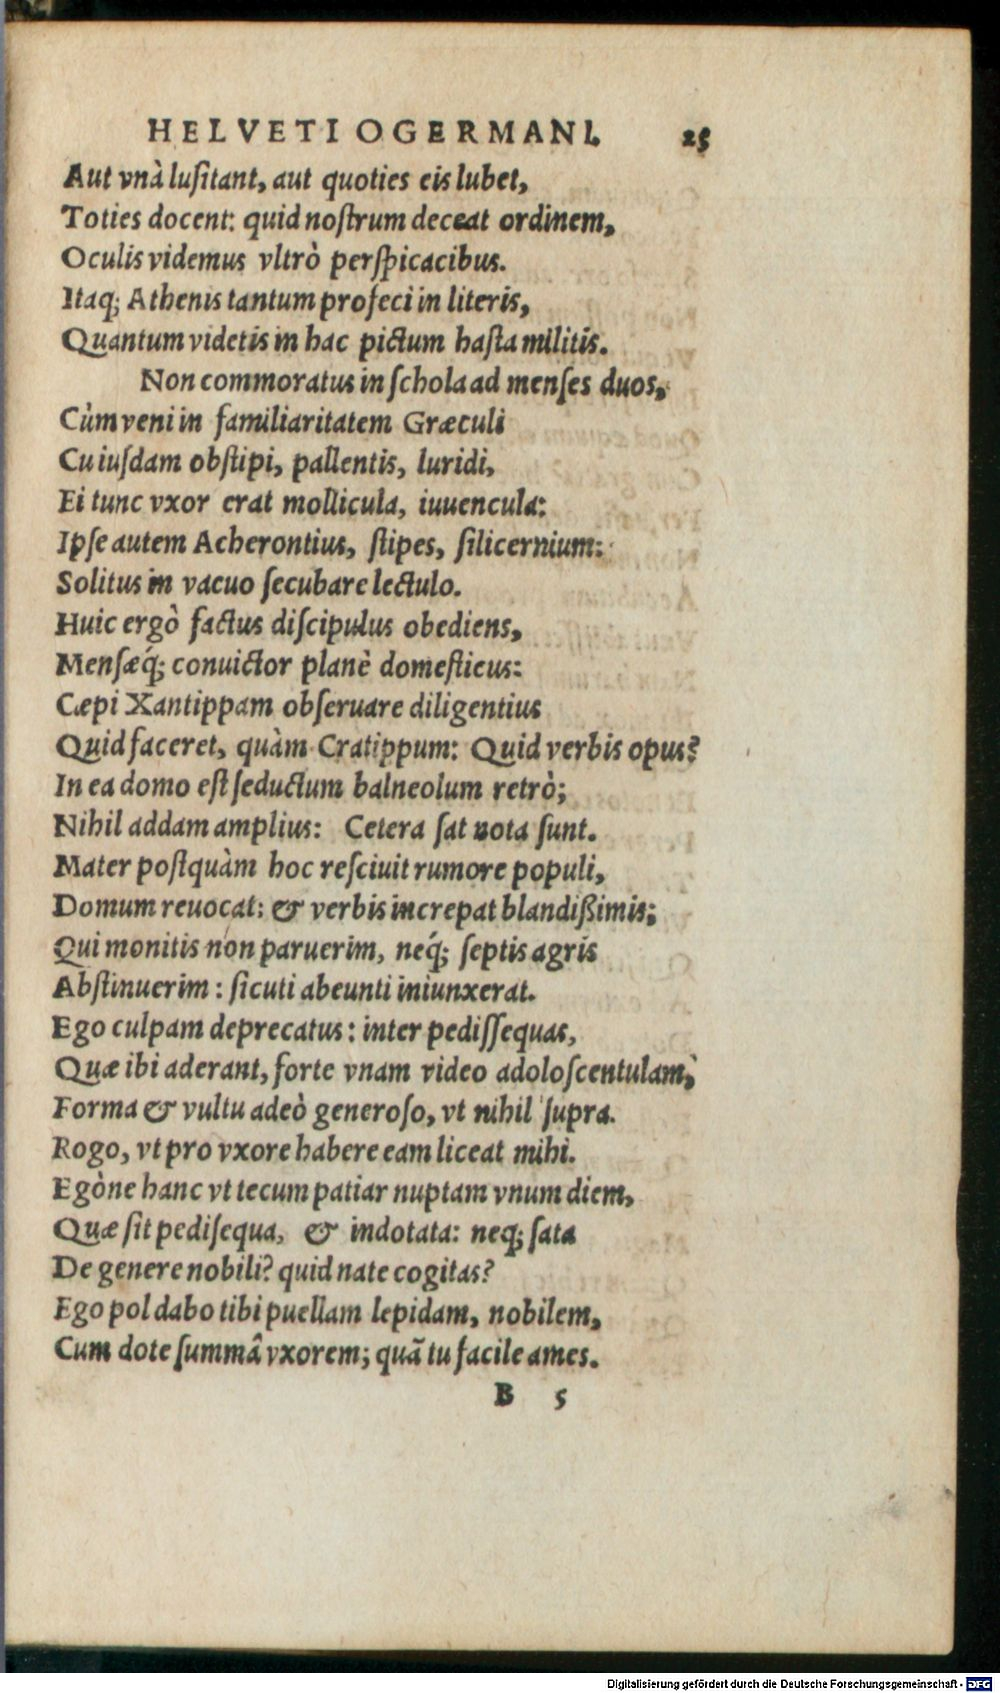 HELVETIOGERMANI. 25
Aut vnà luſitant, aut quoties eis lubet,
Toties docent: quid noſtrum deceat ordinem,
Oculis videmus vltrò perſpicacibus.
Itaq; Athenis tantum profeci in literis,
Quantum videtis in hac pictum haſta militis.
Non commoratus in ſchola ad menſes duos,
Cùm veni in familiaritatem Græculi
Cuiuſdam obſtipi, pallentis, luridi,
Ei tunc vxor erat mollicula, iuuencula:
Ipſe autem Acherontius, ſtipes, ſilicernium:
Solitus in vacuo ſecubare lectulo.
Huic ergò factus diſcipulus obediens,
Menſæq́; conuictor planè domeſticus:
Cæpi Xantippam obſeruare diligentius
Quid faceret, quàm Cratippum: Quid verbis opus?
In ea domo eſt ſeductum balneolum retrò;
Nihil addam amplius: Cetera ſat nota ſunt.
Mater poſtquàm hoc reſciuit rumore populi,
Domum reuocat: & verbis increpat blandißimis;
Qui monitis non paruerim, neq́; ſeptis agris
Abſtinuerim: ſicuti abeunti iniunxerat.
Ego culpam deprecatus: inter pediſſequas,
Quæ ibi aderant, forte vnam video adoloſcentulam,
Forma & vultu adeò generoſo, vt nihil ſupra.
Rogo, vt pro vxore habere eam liceat mihi.
Egòne hanc vt tecum patiar nuptam vnum diem,
Quæ ſit pediſequa, & indotata: neq; ſata
De genere nobili? quid nate cogitas?
Ego pol dabo tibi puellam lepidam, nobilem,
Cum dote ſummâ vxorem; quã tu facile ames.
B 5
Digitalisierung gefördert durch die Deutsche Forschungsgemeinschaft - DFG